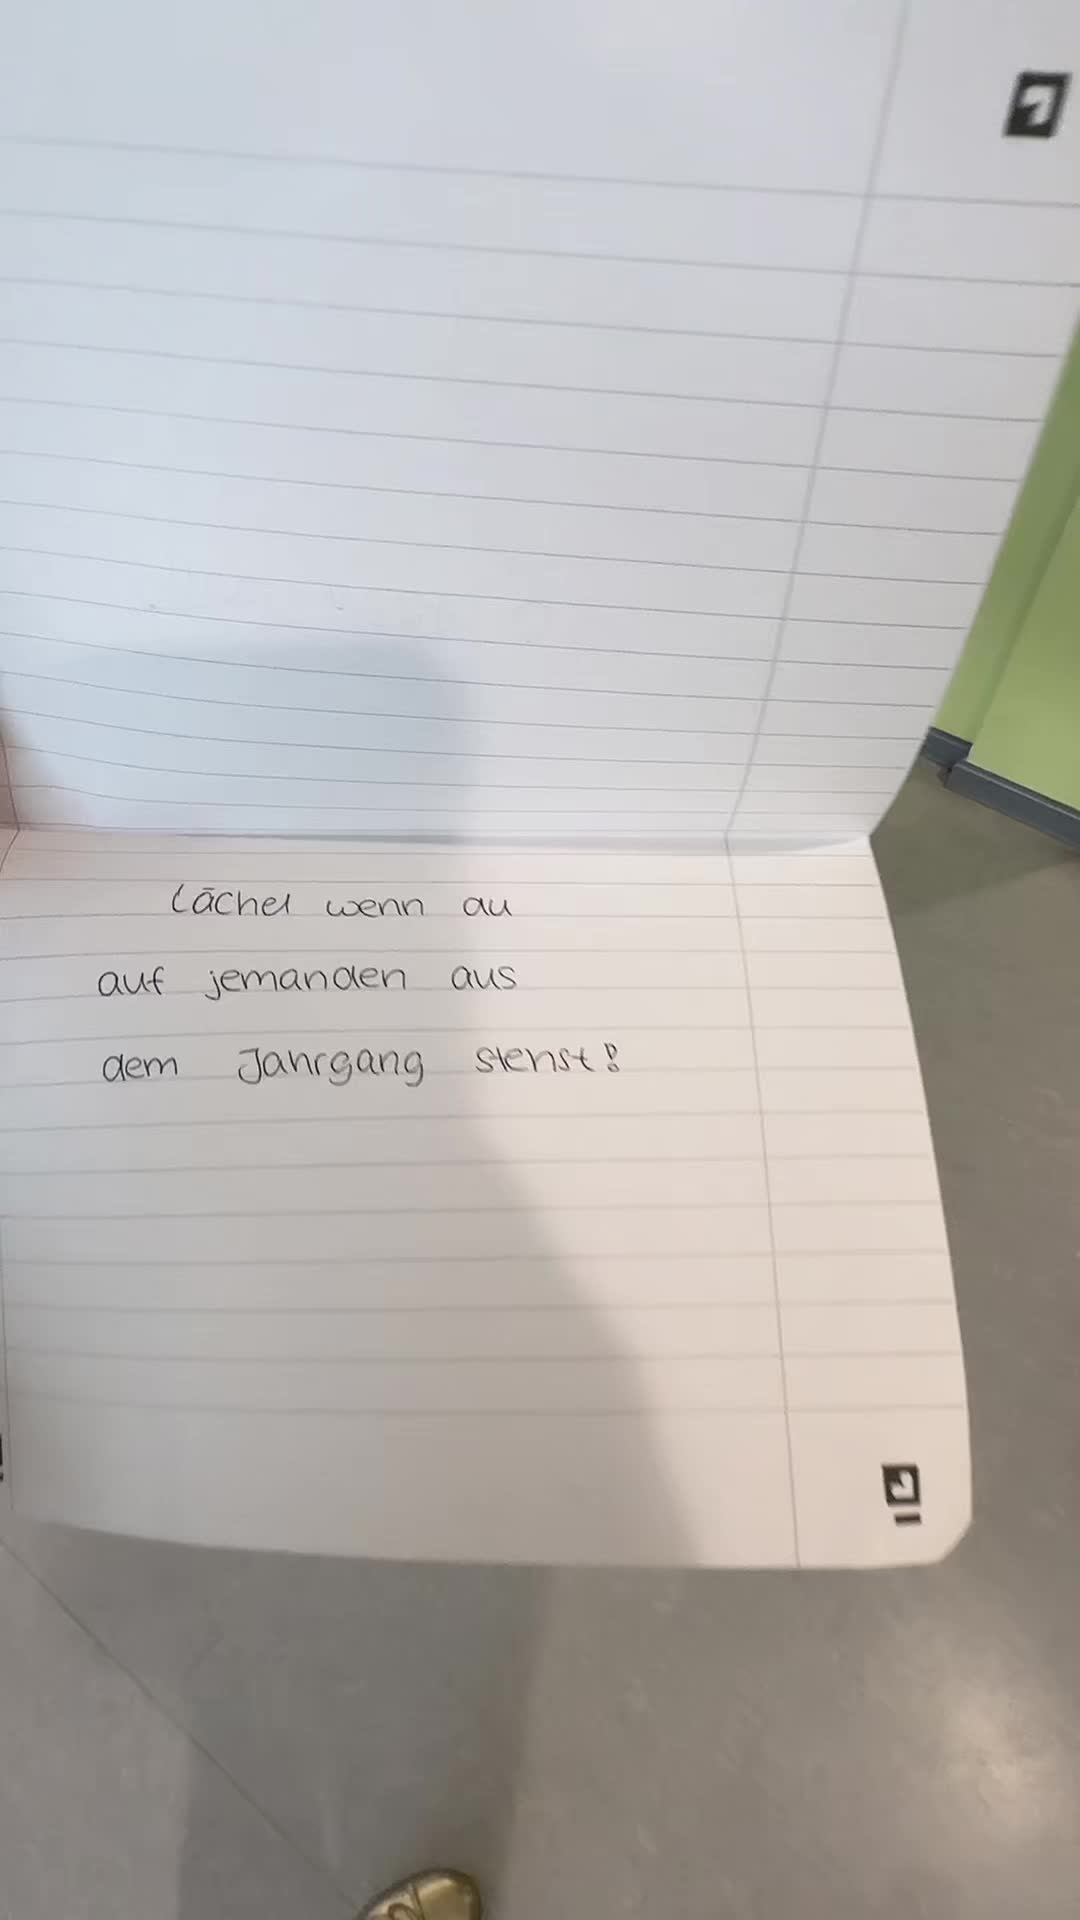 Lächel wenn du
auf jemanden aus
dem Jahrgang stehst!